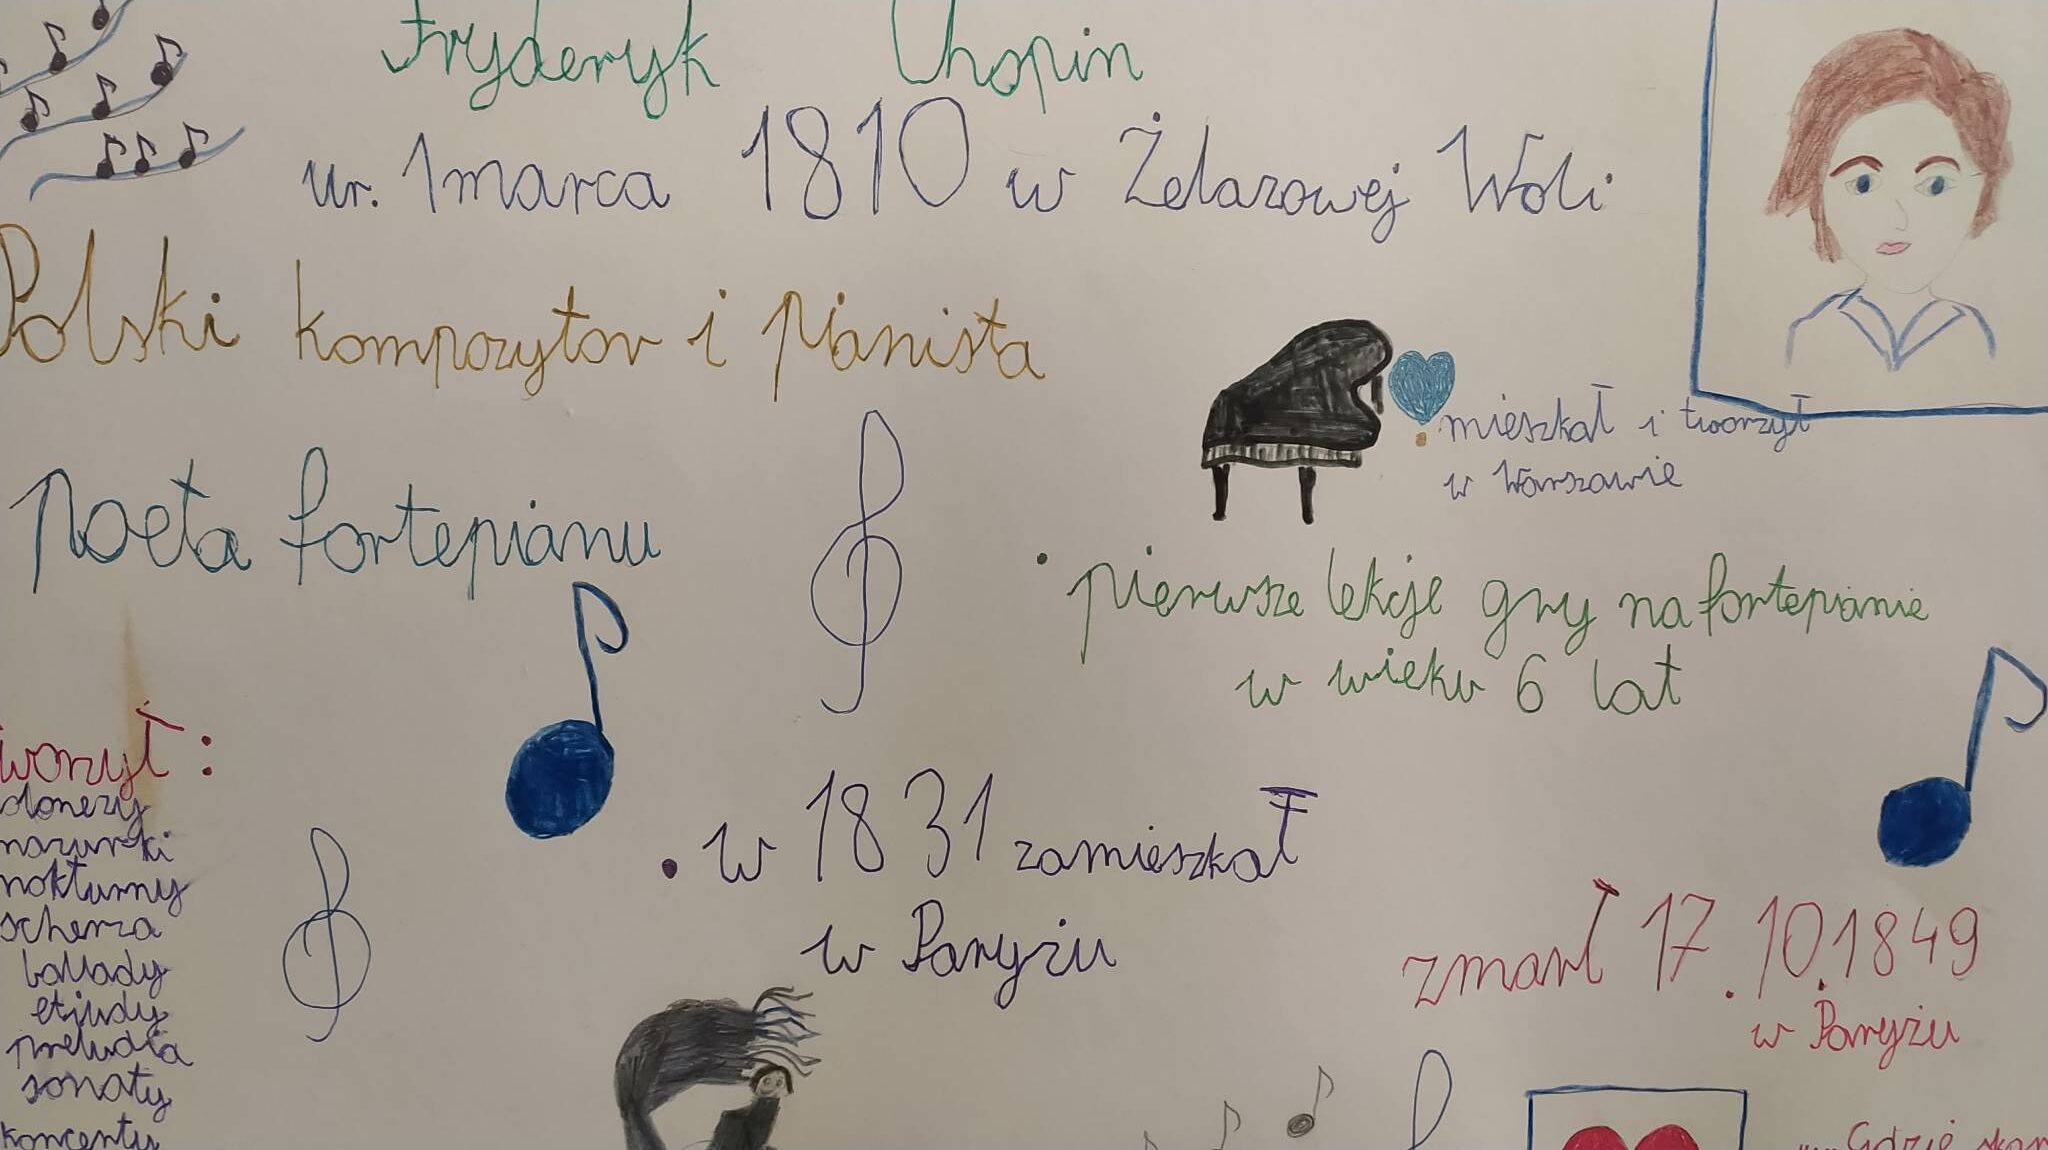 Fryderyk Chopin
ur. 1 marca 1810 w Żelazowej Woli
Polski kompozytor i pianista
mieszkał i tworzył
w Warszawie
poeta fortepianu
pierwsze lekcje gry na fortepianie
w wieku 6 lat
tworzył:
polonezy
mazurki
nokturny
scherza
ballady
etjudy
preludia
sonaty
koncerty
w 1831 zamieszkał
w Paryżu
zmarł 17.10.1849
w Paryżu
"...Gdzie